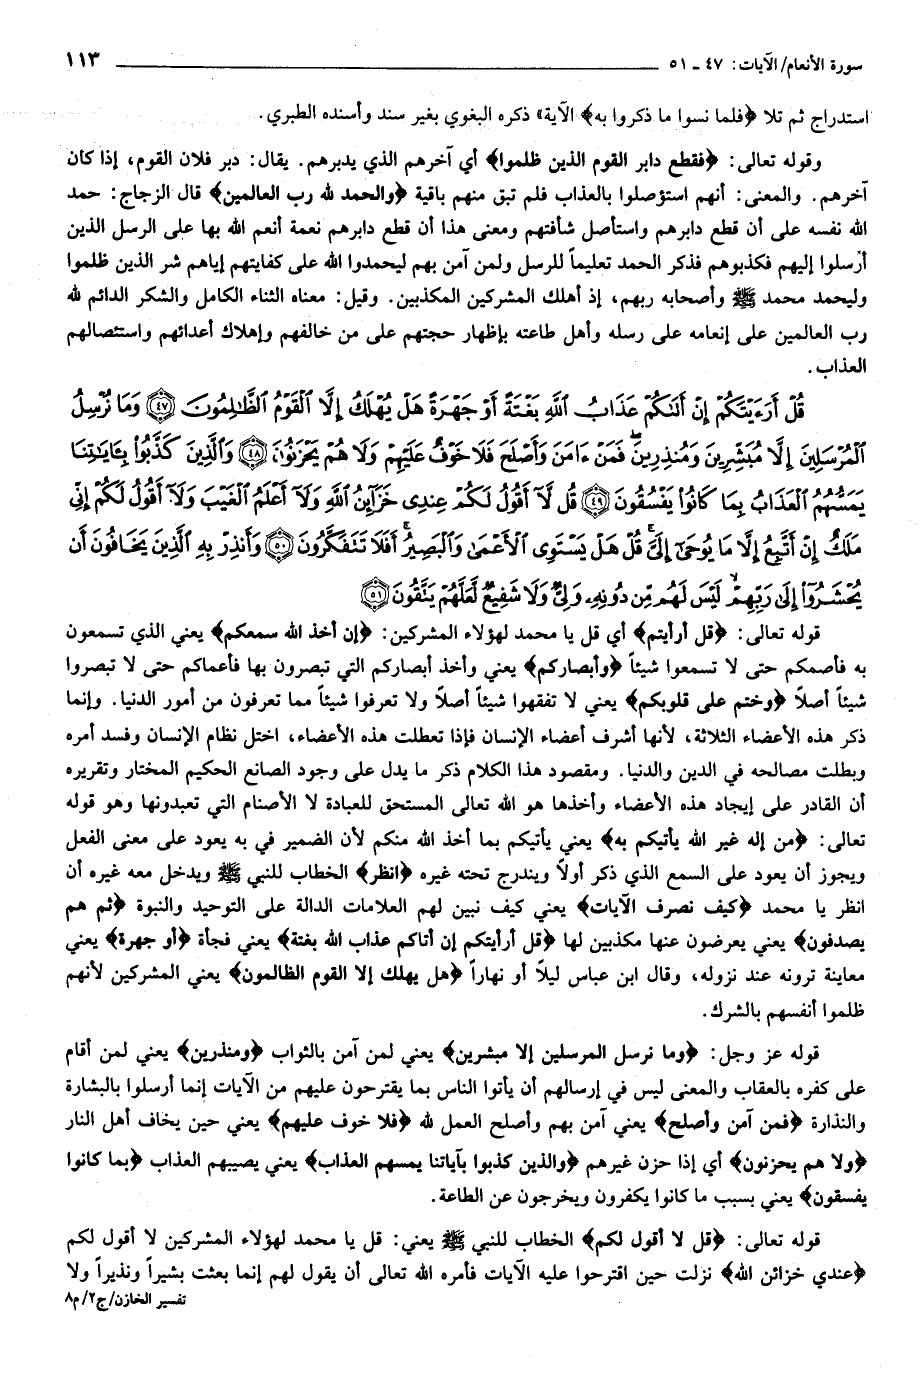 سورة الأنعام/ الآيات: ٤٧ ـ ٥١ ١١٣
استدراج ثم تلا ﴿فلما نسوا ما ذكروا به﴾ الآية» ذكره البغوي بغير سند وأسنده الطبري.
وقوله تعالى: ﴿فقطع دابر القوم الذين ظلموا﴾ أي آخرهم الذي يدبرهم. يقال: دبر فلان القوم، إذا كان
آخرهم. والمعنى: أنهم استؤصلوا بالعذاب فلم تبق منهم باقية ﴿والحمد لله رب العالمين﴾ قال الزجاج: حمد
الله نفسه على أن قطع دابرهم واستأصل شأفتهم ومعنى هذا أن قطع دابرهم نعمة أنعم الله بها على الرسل الذين
أرسلوا إليهم فكذبوهم فذكر الحمد تعليماً للرسل ولمن آمن بهم ليحمدوا الله على كفايتهم إياهم شر الذين ظلموا
وليحمد محمد ﷺ وأصحابه ربهم، إذ أهلك المشركين المكذبين. وقيل: معناه الثناء الكامل والشكر الدائم لله
رب العالمين على إنعامه على رسله وأهل طاعته بإظهار حجتهم على من خالفهم وإهلاك أعدائهم واستئصالهم
العذاب.
قُلْ أَرَءَيْتَكُمْ إِنْ أَتَىٰكُمْ عَذَابُ ٱللَّهِ بَغْتَةً أَوْ جَهْرَةً هَلْ يُهْلَكُ إِلَّا ٱلْقَوْمُ ٱلظَّٰلِمُونَ ﴿٤٧﴾ وَمَا نُرْسِلُ
ٱلْمُرْسَلِينَ إِلَّا مُبَشِّرِينَ وَمُنذِرِينَۖ فَمَنْ ءَامَنَ وَأَصْلَحَ فَلَا خَوْفٌ عَلَيْهِمْ وَلَا هُمْ يَحْزَنُونَ ﴿٤٨﴾ وَٱلَّذِينَ كَذَّبُوا۟ بِـَٔايَٰتِنَا
يَمَسُّهُمُ ٱلْعَذَابُ بِمَا كَانُوا۟ يَفْسُقُونَ ﴿٤٩﴾ قُل لَّآ أَقُولُ لَكُمْ عِندِى خَزَآئِنُ ٱللَّهِ وَلَآ أَعْلَمُ ٱلْغَيْبَ وَلَآ أَقُولُ لَكُمْ إِنِّى
مَلَكٌ إِنْ أَتَّبِعُ إِلَّا مَا يُوحَىٰٓ إِلَىَّۚ قُلْ هَلْ يَسْتَوِى ٱلْأَعْمَىٰ وَٱلْبَصِيرُۚ أَفَلَا تَتَفَكَّرُونَ ﴿٥٠﴾ وَأَنذِرْ بِهِ ٱلَّذِينَ يَخَافُونَ أَن
يُحْشَرُوٓا۟ إِلَىٰ رَبِّهِمْۙ لَيْسَ لَهُم مِّن دُونِهِۦ وَلِىٌّ وَلَا شَفِيعٌ لَّعَلَّهُمْ يَتَّقُونَ ﴿٥١﴾
قوله تعالى: ﴿قل أرأيتم﴾ أي قل يا محمد لهؤلاء المشركين: ﴿إن أخذ الله سمعكم﴾ يعني الذي تسمعون
به فأصمكم حتى لا تسمعوا شيئاً ﴿وأبصاركم﴾ يعني وأخذ أبصاركم التي تبصرون بها فأعماكم حتى لا تبصروا
شيئاً أصلاً ﴿وختم على قلوبكم﴾ يعني لا تفقهوا شيئاً أصلاً ولا تعرفوا شيئاً مما تعرفون من أمور الدنيا. وإنما
ذكر هذه الأعضاء الثلاثة، لأنها أشرف أعضاء الإنسان فإذا تعطلت هذه الأعضاء، اختل نظام الإنسان وفسد أمره
وبطلت مصالحه في الدين والدنيا. ومقصود هذا الكلام ذكر ما يدل على وجود الصانع الحكيم المختار وتقريره
أن القادر على إيجاد هذه الأعضاء وأخذها هو الله تعالى المستحق للعبادة لا الأصنام التي تعبدونها وهو قوله
تعالى: ﴿من إله غير الله يأتيكم به﴾ يعني يأتيكم بما أخذ الله منكم لأن الضمير في به يعود على معنى الفعل
ويجوز أن يعود على السمع الذي ذكر أولاً ويندرج تحته غيره ﴿انظر﴾ الخطاب للنبي ﷺ ويدخل معه غيره أن
انظر يا محمد ﴿كيف نصرف الآيات﴾ يعني كيف نبين لهم العلامات الدالة على التوحيد والنبوة ﴿ثم هم
يصدفون﴾ يعني يعرضون عنها مكذبين لها ﴿قل أرأيتكم إن أتاكم عذاب الله بغتة﴾ يعني فجأة ﴿أو جهرة﴾ يعني
معاينة ترونه عند نزوله، وقال ابن عباس ليلاً أو نهاراً ﴿هل يهلك إلا القوم الظالمون﴾ يعني المشركين لأنهم
ظلموا أنفسهم بالشرك.
قوله عز وجل: ﴿وما نرسل المرسلين إلا مبشرين﴾ يعني لمن آمن بالثواب ﴿ومنذرين﴾ يعني لمن أقام
على كفره بالعقاب والمعنى ليس في إرسالهم أن يأتوا الناس بما يقترحون عليهم من الآيات إنما أرسلوا بالبشارة
والنذارة ﴿فمن آمن وأصلح﴾ يعني آمن بهم وأصلح العمل لله ﴿فلا خوف عليهم﴾ يعني حين يخاف أهل النار
﴿ولا هم يحزنون﴾ أي إذا حزن غيرهم ﴿والذين كذبوا بآياتنا يمسهم العذاب﴾ يعني يصيبهم العذاب ﴿بما كانوا
يفسقون﴾ يعني بسبب ما كانوا يكفرون ويخرجون عن الطاعة.
قوله تعالى: ﴿قل لا أقول لكم﴾ الخطاب للنبي ﷺ يعني: قل يا محمد لهؤلاء المشركين لا أقول لكم
﴿عندي خزائن الله﴾ نزلت حين اقترحوا عليه الآيات فأمره الله تعالى أن يقول لهم إنما بعثت بشيراً ونذيراً ولا
تفسير الخازن/ج٢/م٨